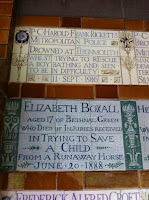 P.C. HAROLD FRANK RICKETTS
METROPOLITAN POLICE
DROWNED AT TEIGNMOUTH
WHILST TRYING TO RESCUE
A BOY BATHING AND SEEN
TO BE IN DIFFICULTY
11 SEPT 1916
ELIZABETH BOXALL
AGED 17 OF BETHNAL GREEN
WHO DIED OF INJURIES RECEIVED
IN TRYING TO SAVE
A CHILD
FROM A RUNAWAY HORSE
JUNE 20 1888
FREDERICK ALFRED CROFT